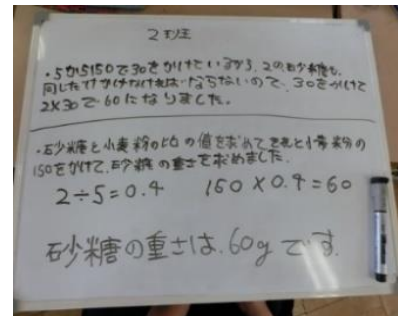 2班
・5から150で30をかけているから、2の砂糖も、
同じだけかけなければならないので、30をかけて
2×30で60になりました。
・砂糖と小麦粉の比の値を求めてそれと小麦粉の
150をかけて、砂糖の重さを求めました。
2÷5=0.4 150×0.4=60
砂糖の重さは、60gです。